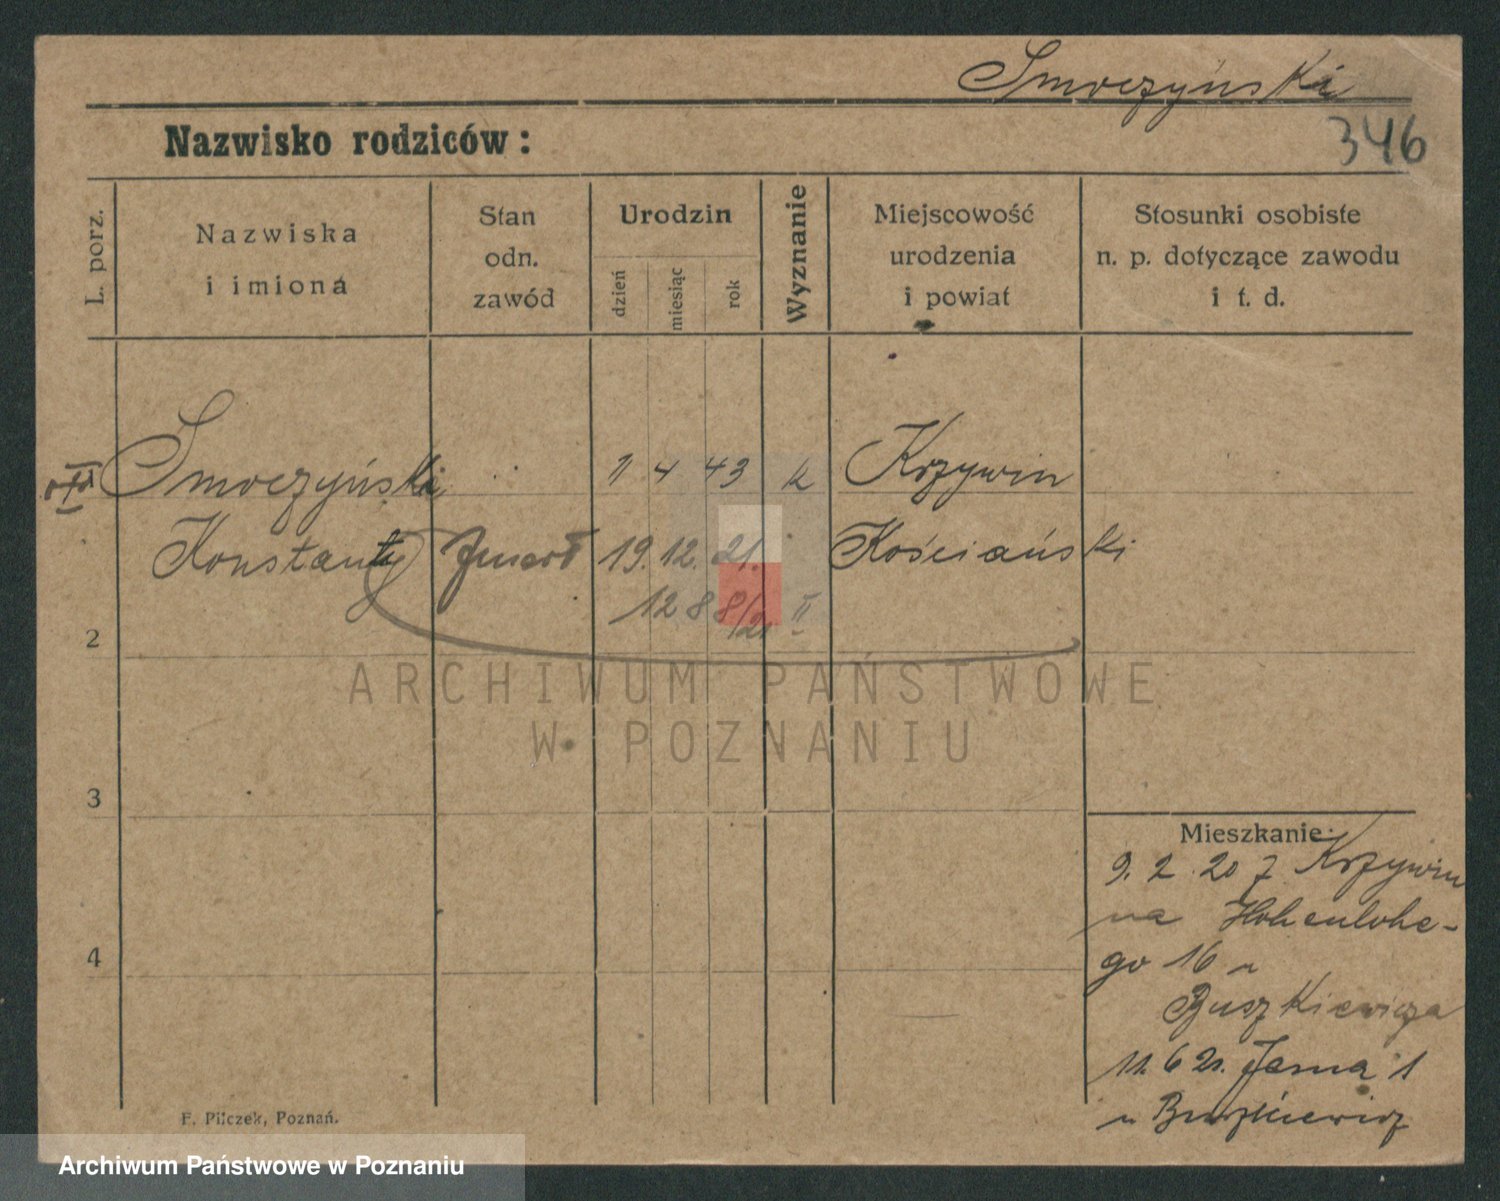 Smoczyński
346
Nazwisko rodziców:
L. porz.
Nazwiska
i imiona
Stan
odn.
zawód
Urodzin
dzień
miesiąc
rok
Wyznanie
Miejscowość
urodzenia
i powiat
Stosunki osobiste
n. p. dotyczące zawodu
i t. d.
Smoczyński 1 4 43 k Krzywin
Konstanty zmarł 19. 12. 21. Kościański
1288/21 II
2
3
4
ARCHIWUM PAŃSTWOWE
W POZNANIU
Mieszkanie:
9. 2. 20 z Krzywin
na Hohenlohe-
go 16 u
Buszkiewicza
11. 6 21. Jasna 1
u Buszkiewicz
F. Pilczek, Poznań.
Archiwum Państwowe w Poznaniu